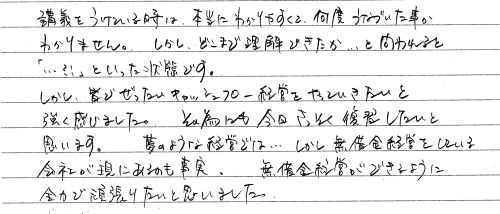 講義をうけている時は、本当にわかりやすくて、何度うなづいた事か
わかりません。しかし、どこまで理解できたか…と問われると
「…!?」といった状態です。
しかし、ぜったいキャッシュフロー経営をやっていきたいと
強く感じました。その為にも今日さっそく復習したいと
思います。夢のような経営とは…しかし無借金経営をしている
会社が現にあるのも事実、無借金経営ができるように
全力で頑張りたいと思いました。